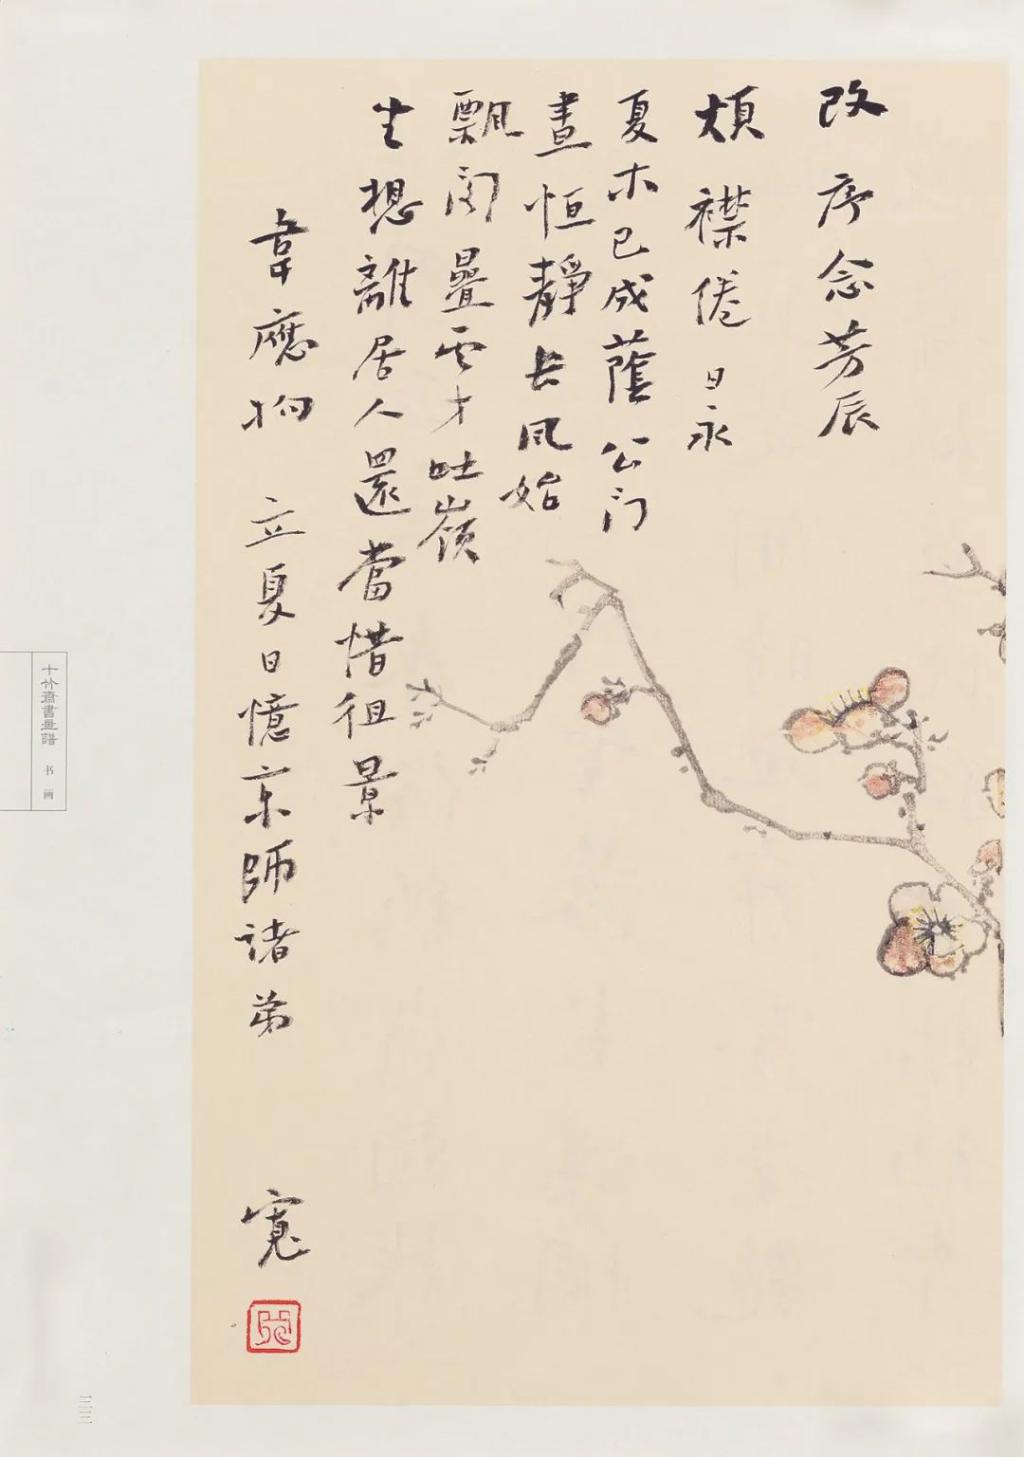 改序念芳辰
煩襟倦日永
夏木已成蔭公门
晝恒靜長风始
飄阁疊云才吐嶺
坐想離居人還當惜徂景
韋應物 立夏日憶京師诸弟
寬
十竹齋書畫譜 书画
三三